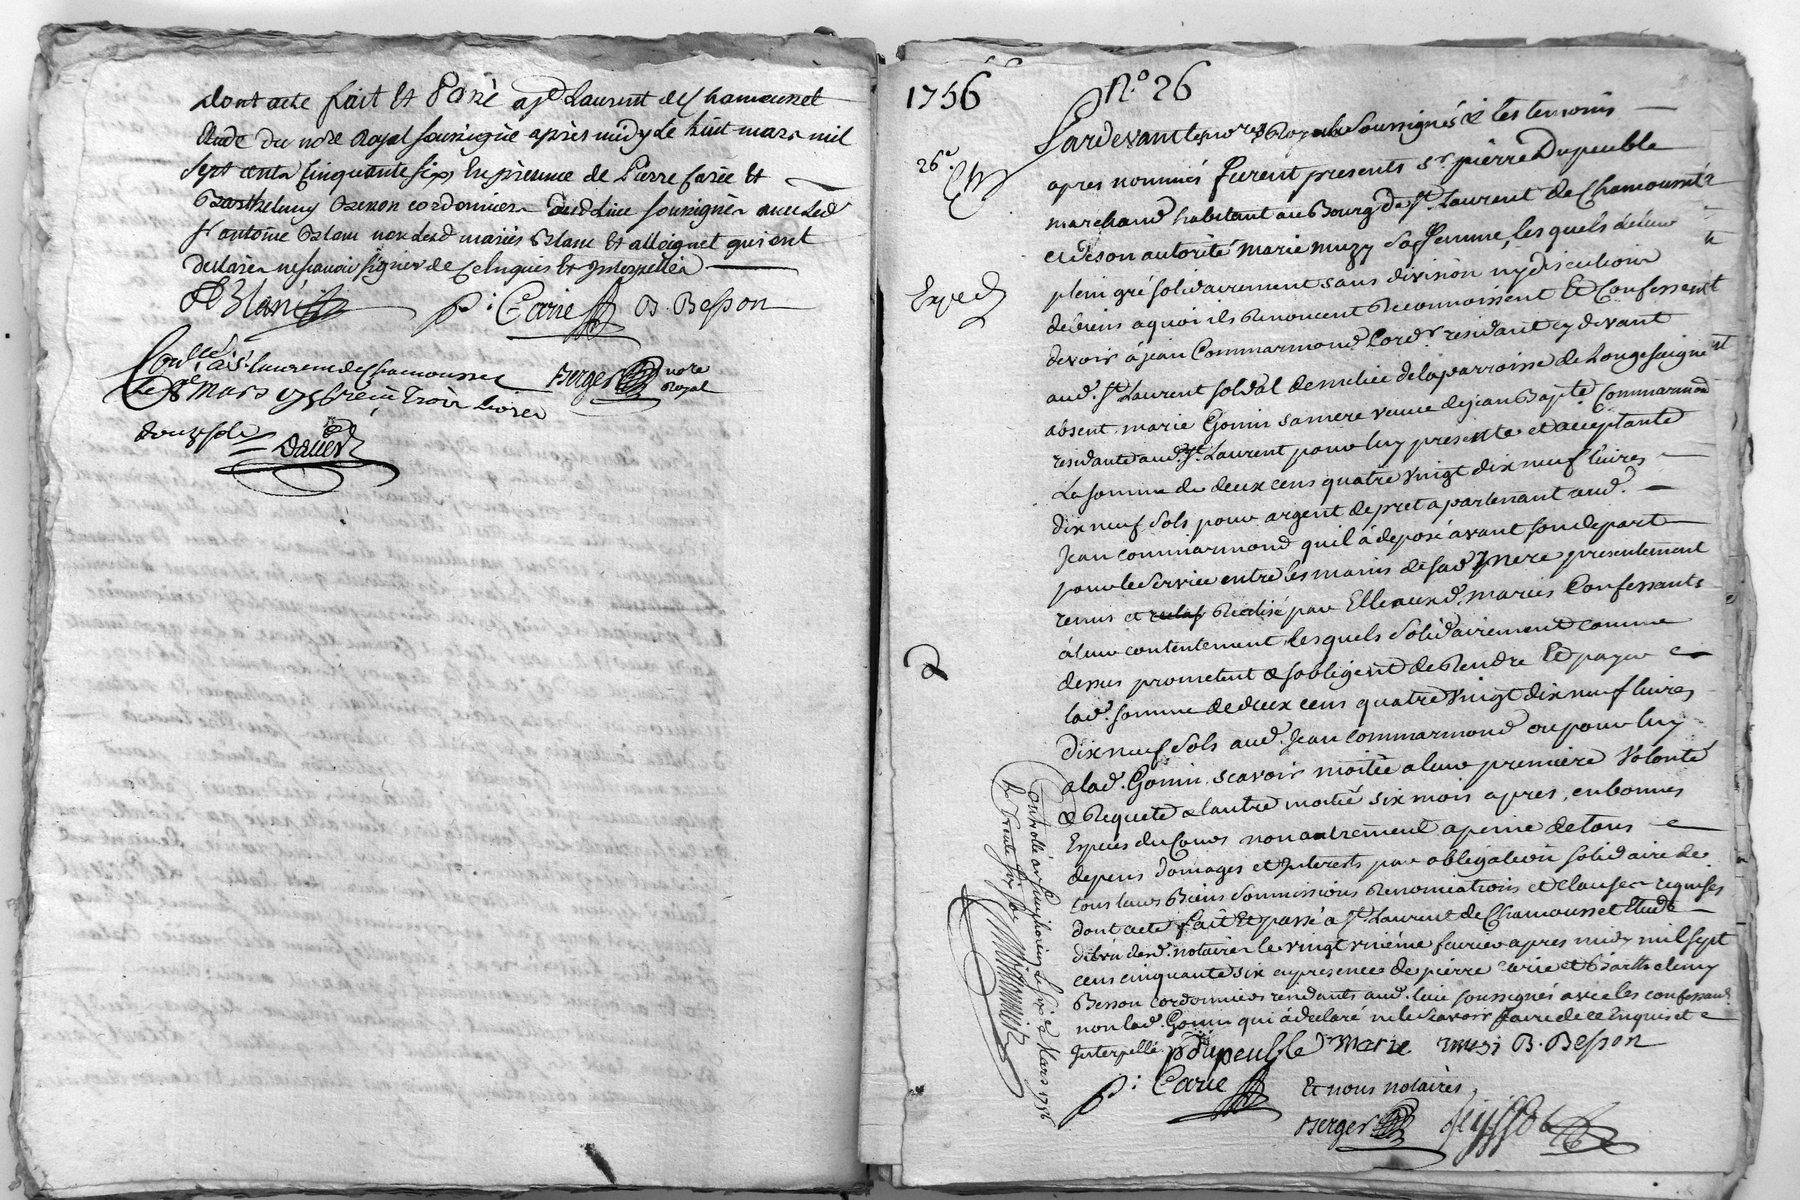 dont acte fait et passé a St Laurent de Chamousset
Etude du nore Royal soussigné après midy le huit mars mil
sept cents cinquante six En présence de Pierre Carie et
Barthelmy Besson cordonnier dud lieu soussignés avec led
sr antoine Blanc non lesd mariés Blanc et alloignet qui ont
declaré ne scavoir signer de ce Enquis et Interpellés
Blanc
P : Carie B. Besson
Coullé a St Laurent de Chamousset
le 8e Mars 1756 reçu trois livres
douze sols
Berger nore
Royal
1756
No. 26
Pardevant les nores Royaux soussignés & les temoins
26e
apres nommés furent presents sr. pierre Dupeuble
marchand habitant au Bourg de St. Laurent de Chamousset
et de son autorité Marie muzy sa femme, les quels de leur
Exped
plein gré solidairement sans division ny discution
de biens a quoi ils Renoncent Reconnoissent Et Confessent
devoir à jean Commarmond Cordr. residant cy devant
aud. St. Laurent soldat de milice de la parroisse de Longesaigne
absent, marie Gonin sa mere veuve de jean Bapte Commarmond
residante aud. St. Laurent pour luy presente et acceptante
La somme de deux cens quatre vingt dix neuf livres
dix neuf sols pour argent de pret apartenant aud.
Jean commarmond qu'il à deposé avant son depart
pour le service entre les mains de sad. mere presentement
remis et Realisé par Elle auxd. mariés Confessants
à leur contentement Lesquels solidairement comme
dessus prometent & s'obligent de Rendre Et payer
lad. somme de deux cens quatre vingt dix neuf livres
Dix neuf sols aud. Jean commarmond ou pour luy
alad. Gonin, scavoir moitié a leur premiere Volonté
& Requete & l'autre moitié six mois apres, en bonnes
Especes du Cours non autrement a peine de tous
depens domages et Interests par obligation solidaire de
tous leurs Biens soumissions Renonciations et clauses requises
dont acte fait Et passé a St. Laurent de Chamousset Etude
dud. notaire le vingt fevrier apres midy mil sept
cens cinquante six en presence de pierre carie et Barthelemy
Besson cordonniers residants aud. lieu soussignés avec les confessans
non lad. Gonin qui à declaré ne le scavoir faire de ce Enquis et
Interpellé pdupeuble Marie musi B. Besson
P : Carie
Et nous notaires
Berger
Controllé a St Simphorien le six Mars 1756